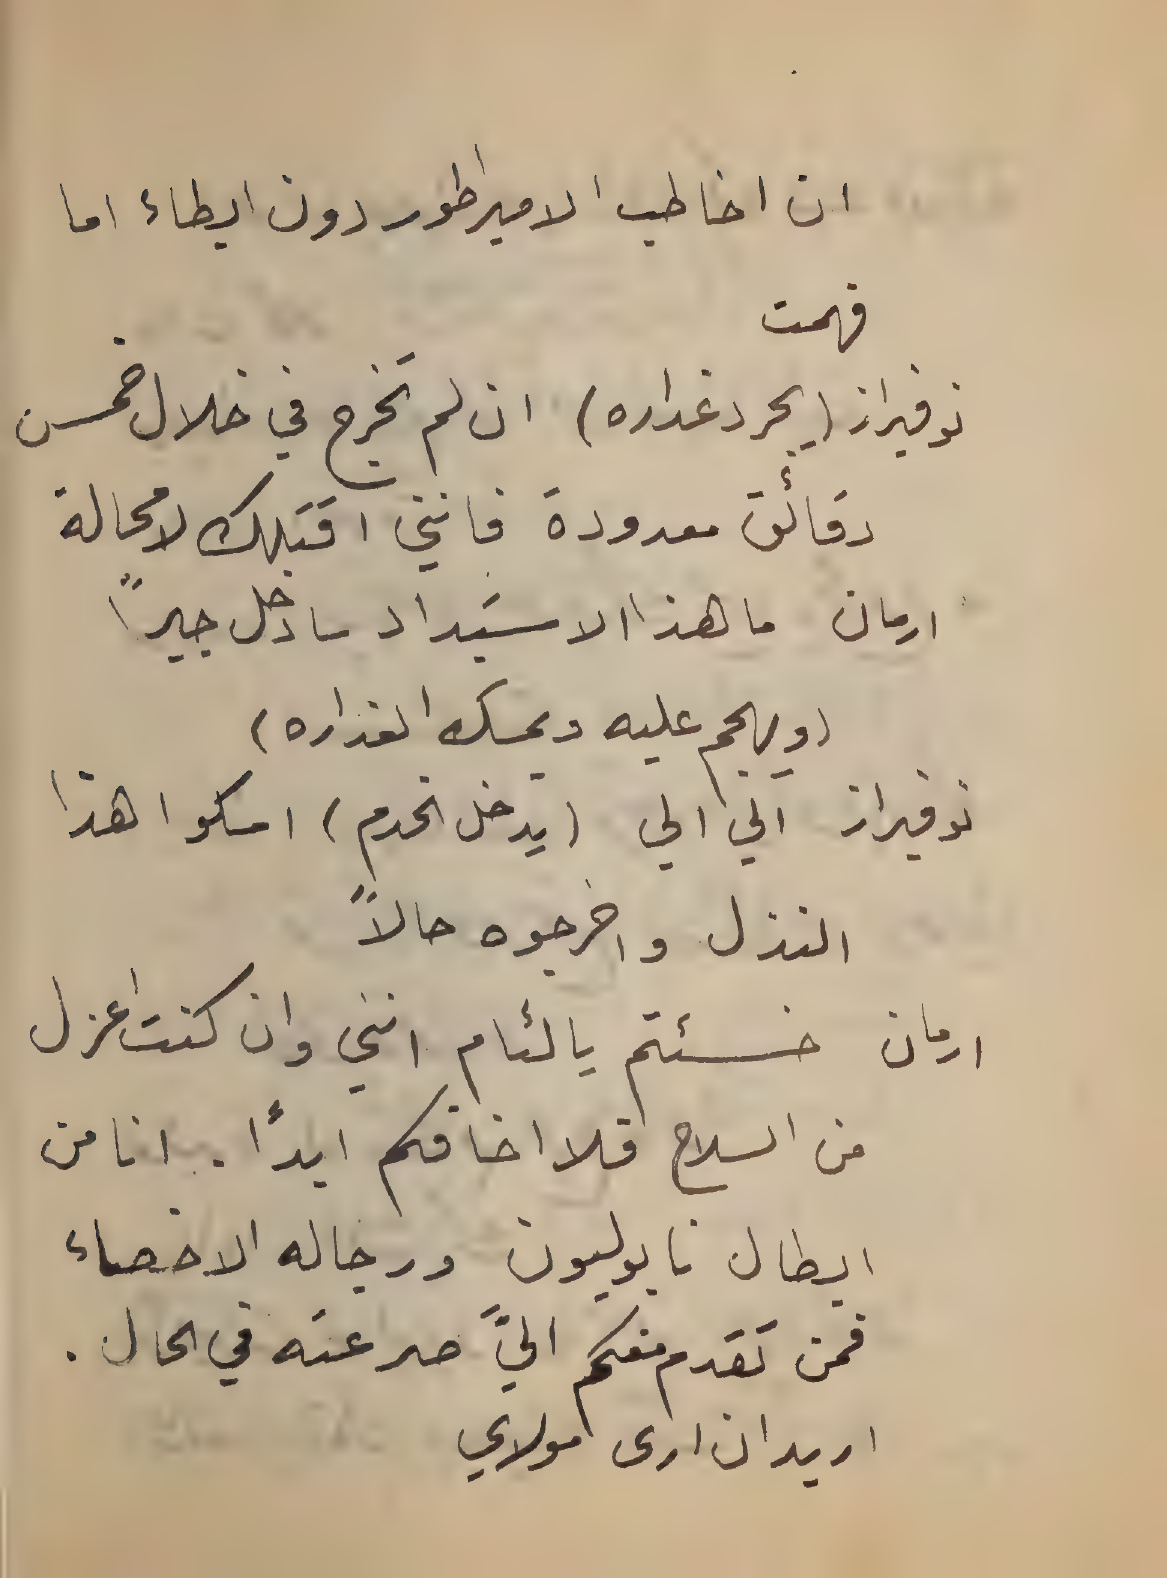 ان اخاطب الامبراطور دون ابطاء اما
فهمت
نوفيراز (يجرد غداره) ان لم تخرج في خلال خمس
دقائق معدودة فانني اقتلك لا محالة
ارمان ما هذا الاستبداد سادخل جبراً
(ويهجم عليه ويمسك الغداره)
نوفيراز اليّ الي (يدخل الخدم) امسكوا هذا
النذل واخرجوه حالاً
ارمان خسئتم يا لئام انني وان كنت اعزل
من السلاح فلا اخافكم ابدًا. انا من
ابطال نابوليون ورجاله الاخصاء
فمن تقدم منكم اليَّ صرعته في الحال.
اريد ان ارى مولاي